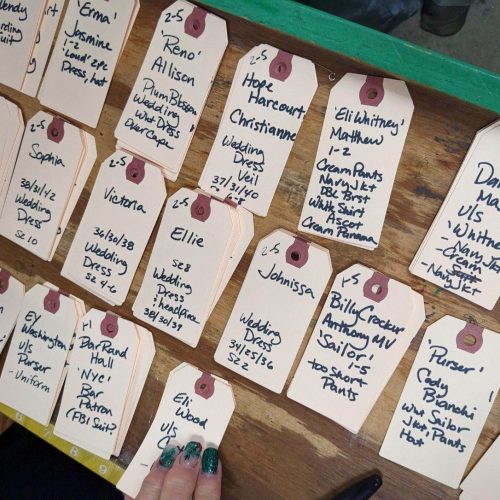 endy
'Erma'
Jasmine
1-2
'Loud' 2pc
Dress, hat
2-5
'Reno'
Allison
Plum Blossom
Wedding
Wht Dress
Over Cape
2-5
Hope
Harcourt
Christianne
Wedding
Dress
Veil
37/31/40
'Eli Whitney'
Matthew
1-2
Cream Pants
Navy Jkt
DBL Brst
White Shirt
Ascot
Cream Panama
Da
Ma
u/s
'Whitne
- Navy Jk
- Cream
- Navy Jkt
2-5
Sophia
38/31/42
Wedding
Dress
Sz 10
2-5
Victoria
36/30/38
Wedding
Dress
Sz 4-6
2-5
Ellie
Sz 8
Wedding
Dress
+ headpiece
38/30/39
Johnissa
Wedding
Dress
34/25/36
Sz 2
Billy Crocker
Anthony MV
'Sailor'
1-5
too short
Pants
'Purser'
Cody
Bianchi
Wht Sailor
Jkt, Pants
Hat
EY
Washington
u/s
Purser
- Uniform
DarRand
Hall
'NYC'
Bar
Patron
(FBI Suit?)
Eli
Wood
u/s